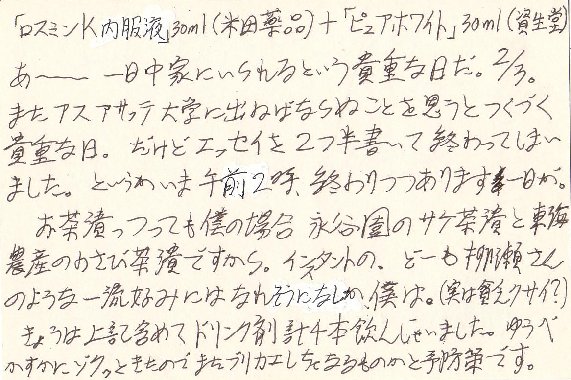 「ロスミンK内服液」30ml(米田薬品)+「ピュアホワイト」30ml(資生堂)
あ〜〜 一日中家にいられるという貴重な日だ。2/3。
またアスアサッテ大学に出ねばならぬことを思うとつくづく
貴重な日。だけどエッセイを2つ半書いて終わってしまい
ました。というわいま午前2時、終わりつつあります 一日が。
お茶漬っつっても僕の場合 永谷園のサケ茶漬と東海
農産のわさび茶漬ですから。インスタントの、どーも柳瀬さん
のような一流好みにはなれそうになしか、僕は。(実は貧乏クサイ?)
きょうは上記含めてドリンク剤計4本飲んじゃいました。ゆうべ
かすかにゾクッときたのでまたブリカエしちゃなるものかと予防策です。